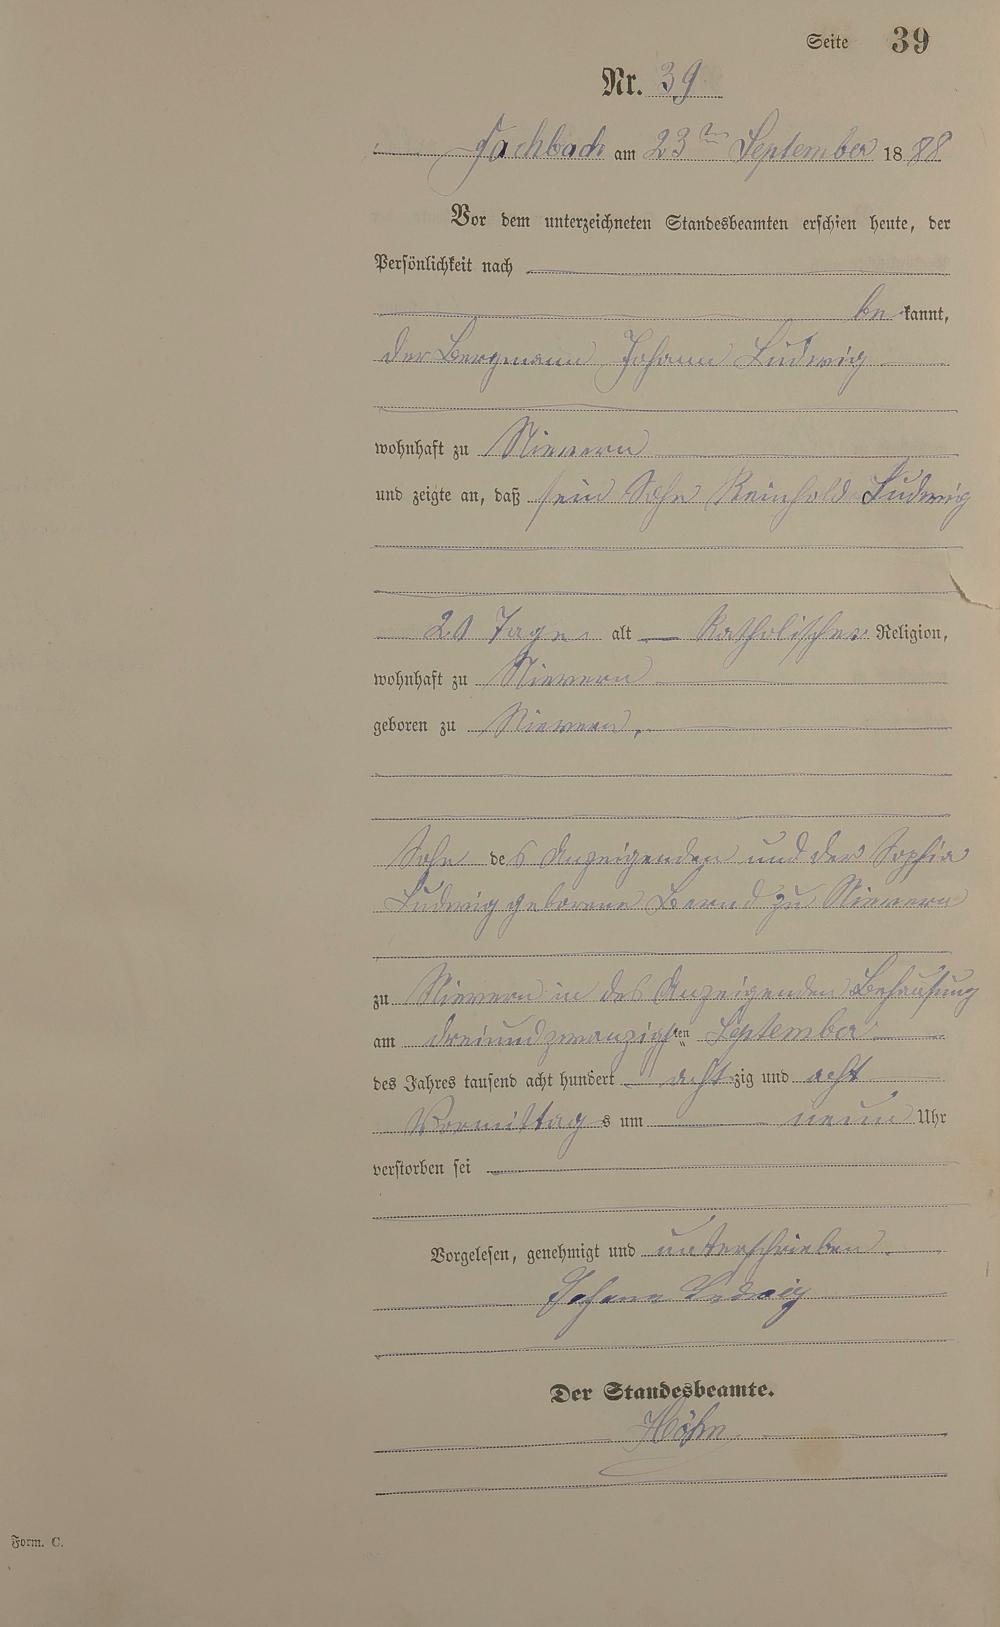 Seite 39
Nr. 39
Fachbach am 23ten September 1888
Vor dem unterzeichneten Standesbeamten erschien heute, der
Persönlichkeit nach
be kannt,
der Bergmann Johann Ludwig
wohnhaft zu Nievern
und zeigte an, daß sein Sohn Reinhold Ludwig
20 Tage alt Katholischer Religion,
wohnhaft zu Nievern
geboren zu Nievern,
Sohn des Anzeigenden und der Sophia
Ludwig geborene Bernd zu Nievern
zu Nievern in des Anzeigenden Behausung
am dreiundzwanzigsten September
des Jahres tausend acht hundert achtzig und acht
Vormittags um neun Uhr
verstorben sei
Vorgelesen, genehmigt und unterschrieben.
Johann Ludwig
Der Standesbeamte.
Höhn
Form. C.